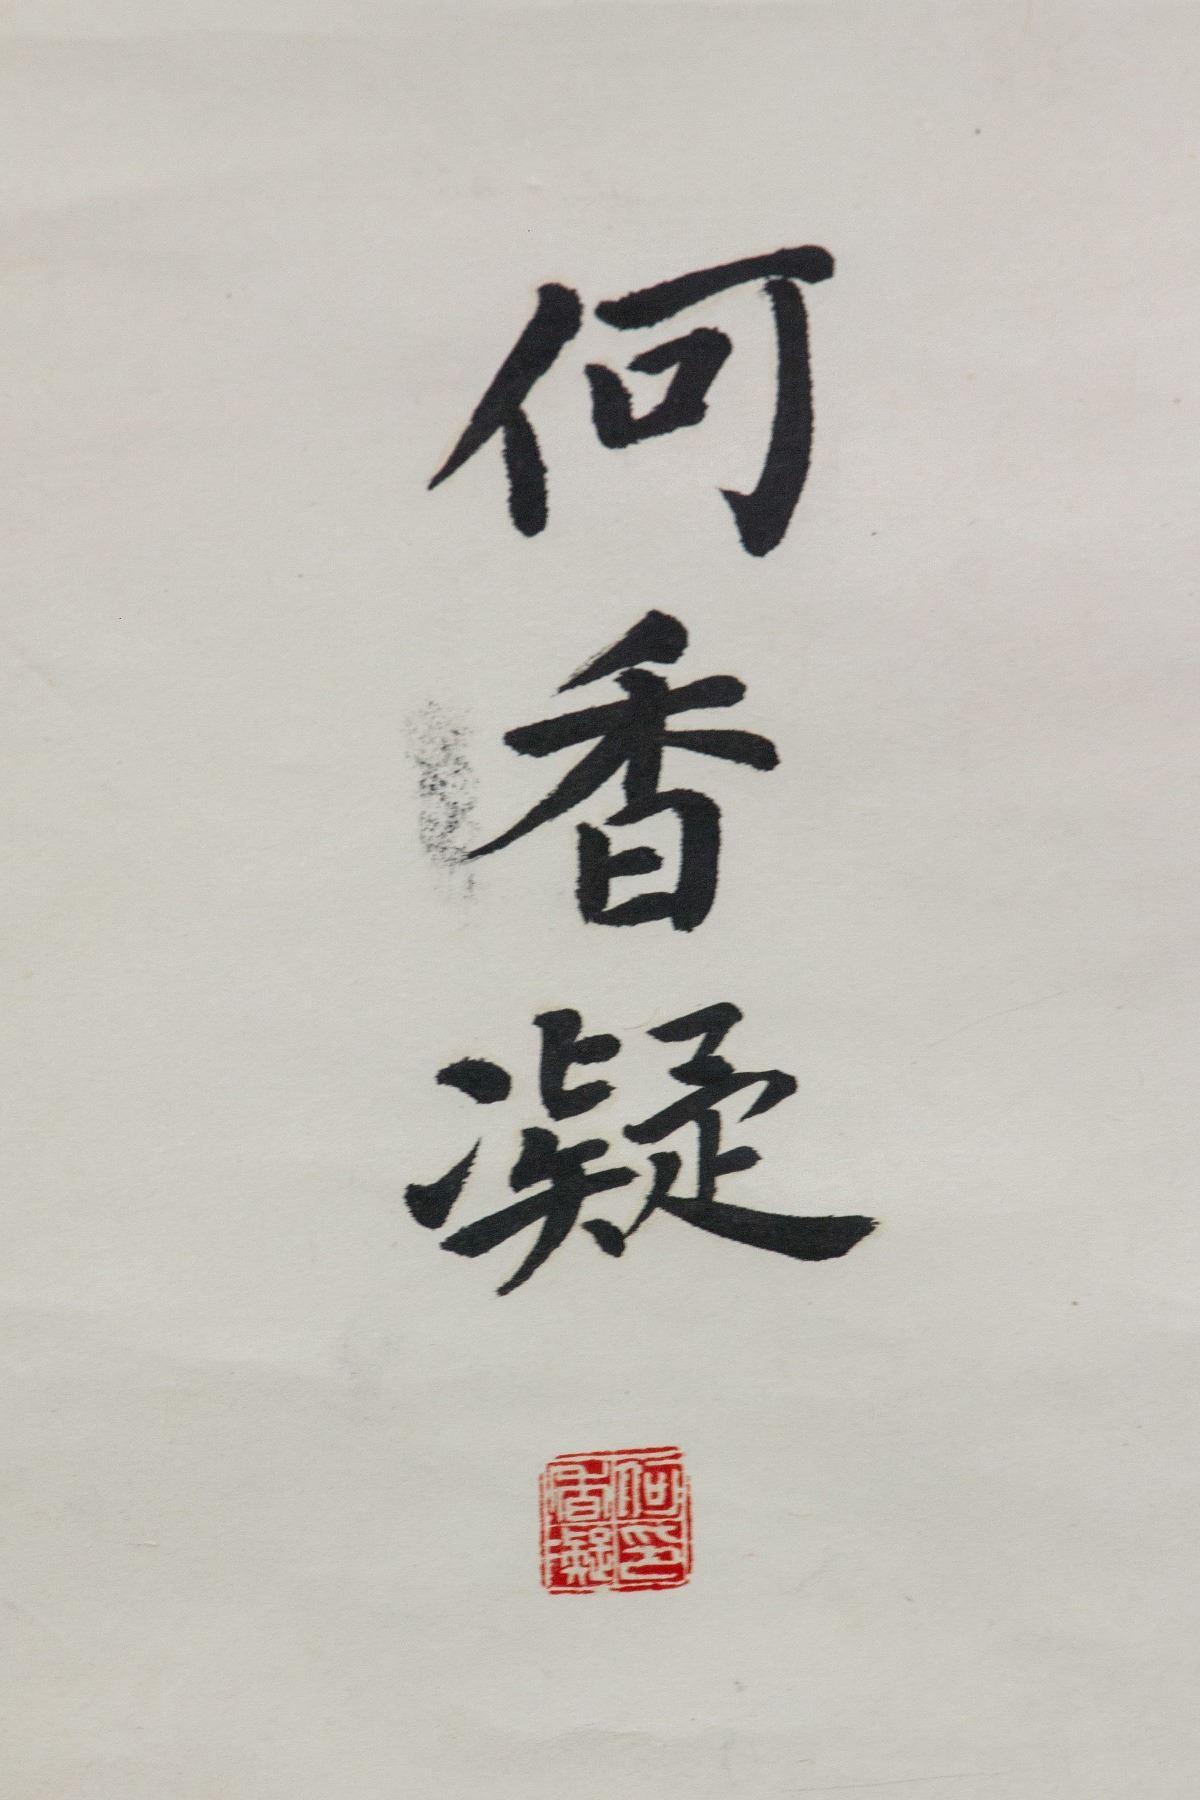 何香凝
何印香凝